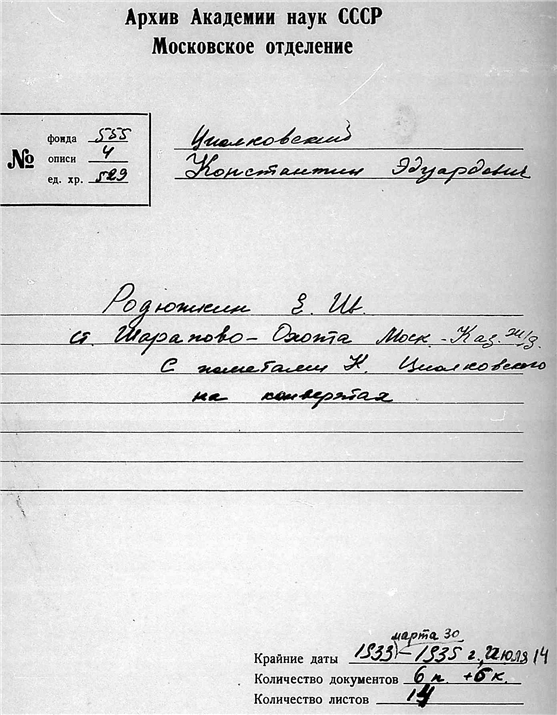 Архив Академии наук СССР
Московское отделение
№
фонда 555
описи 4
ед. хр. 529
Циолковский
Константин Эдуардович
Родюшкин Е. Ив.
ст. Шарапово-Охота Моск.-Каз. ж/д.
С пометами К. Циолковского
на конвертах
марта 30
Крайние даты 1933 – 1935 г., июля 14
Количество документов 6 п. + 5 к.
Количество листов 14